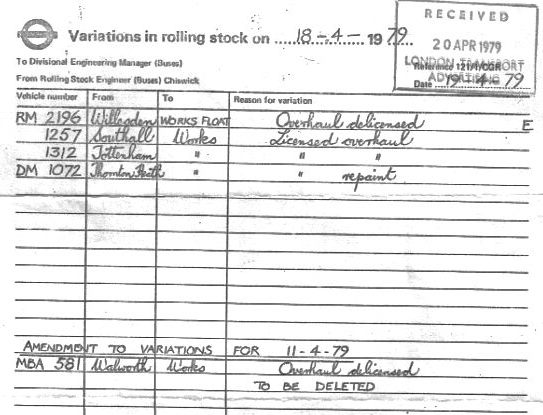 RECEIVED
20 APR 1979
LONDON TRANSPORT
ADVERTISING
Variations in rolling stock on 18-4-1979
To Divisional Engineering Manager (Buses)
Reference 121/1/CGR
From Rolling Stock Engineer (Buses) Chiswick
Date 19-4-79
Vehicle number From To Reason for variation
RM 2196 Willesden WORKS FLOAT Overhaul delicensed E
1257 Southall Works Licensed overhaul
1312 Tottenham " " "
DM 1072 Thornton Heath " " repaint
AMENDMENT TO VARIATIONS FOR 11-4-79
MBA 581 Walworth Works Overhaul delicensed
TO BE DELETED